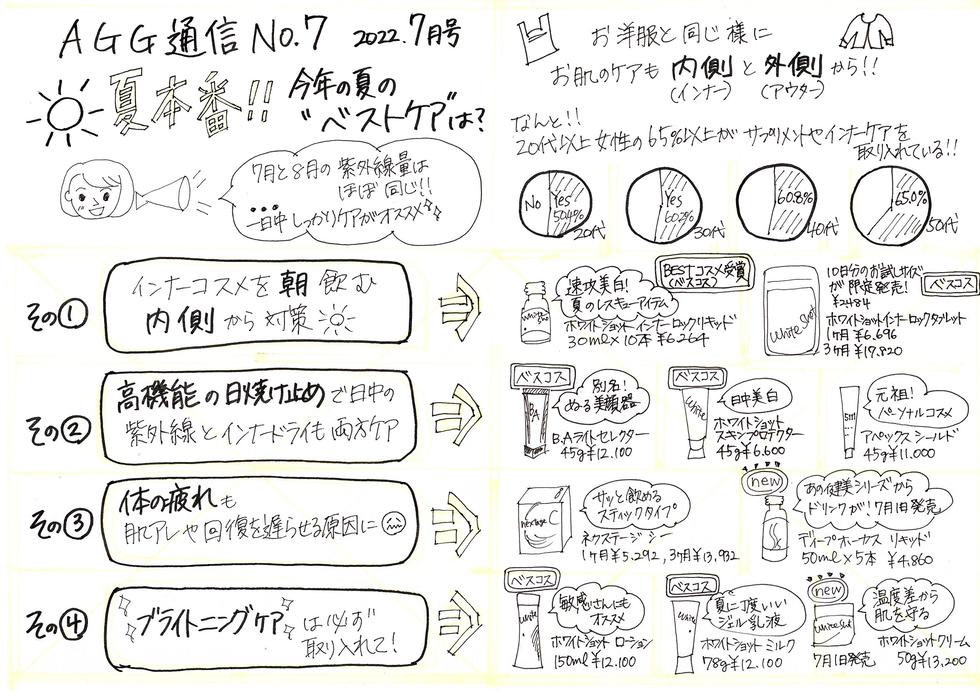 AGG通信 No.7 2022.7月号
夏本番!! 今年の夏の
"ベストケア"は?
7月と8月の紫外線量は
ほぼ同じ!!
一日中しっかりケアがオススメ
お洋服と同じ様に
お肌のケアも 内側 と 外側 から!!
(インナー) (アウター)
なんと!!
20代以上女性の65%以上がサプリメントやインナーケアを
取り入れている!!
No Yes 50.4% 20代
Yes 60.2% 30代
60.8% 40代
65.0% 50代
その① インナーコスメを朝飲む
内側から対策
速攻美白!
夏のレスキューアイテム
BESTコスメ受賞
(ベスコス)
ホワイトショット インナーロックリキッド
30ml×10本 ¥6,264
10日分のお試しサイズ
が限定発売!
¥2484
ベスコス
White Shot
ホワイトショットインナーロックタブレット
1ヶ月 ¥6,696
3ヶ月 ¥17,820
その② 高機能の日焼け止めで日中の
紫外線とインナードライも両方ケア
ベスコス
別名!
める美顔器
BA
B.Aライトセレクター
45g ¥12,100
ベスコス
日中美白
White
ホワイトショット
スキンプロテクター
45g ¥6,600
元祖!
パーソナルコスメ
アペックス シールド
45g ¥11,000
その③ 体の疲れも
肌アレや回復を遅らせる原因に
サッと飲める
スティックタイプ
nextage C
ネクステージ シー
1ヶ月 ¥5,292, 3ヶ月 ¥13,932
new
あの健美シリーズから
ドリンクが!7月1日発売
ディープホーカス リキッド
50ml×5本 ¥4,860
その④ ブライトニングケアは必ず
取り入れて!
ベスコス
敏感さんにも
オススメ
White
ホワイトショット ローション
150ml ¥12,100
ベスコス
夏に丁度いい
ジェル乳液
White
ホワイトショット ミルク
78g ¥12,100
new
温度差から
肌を守る
White Shot
ホワイトショットクリーム
7月1日発売 50g ¥13,200